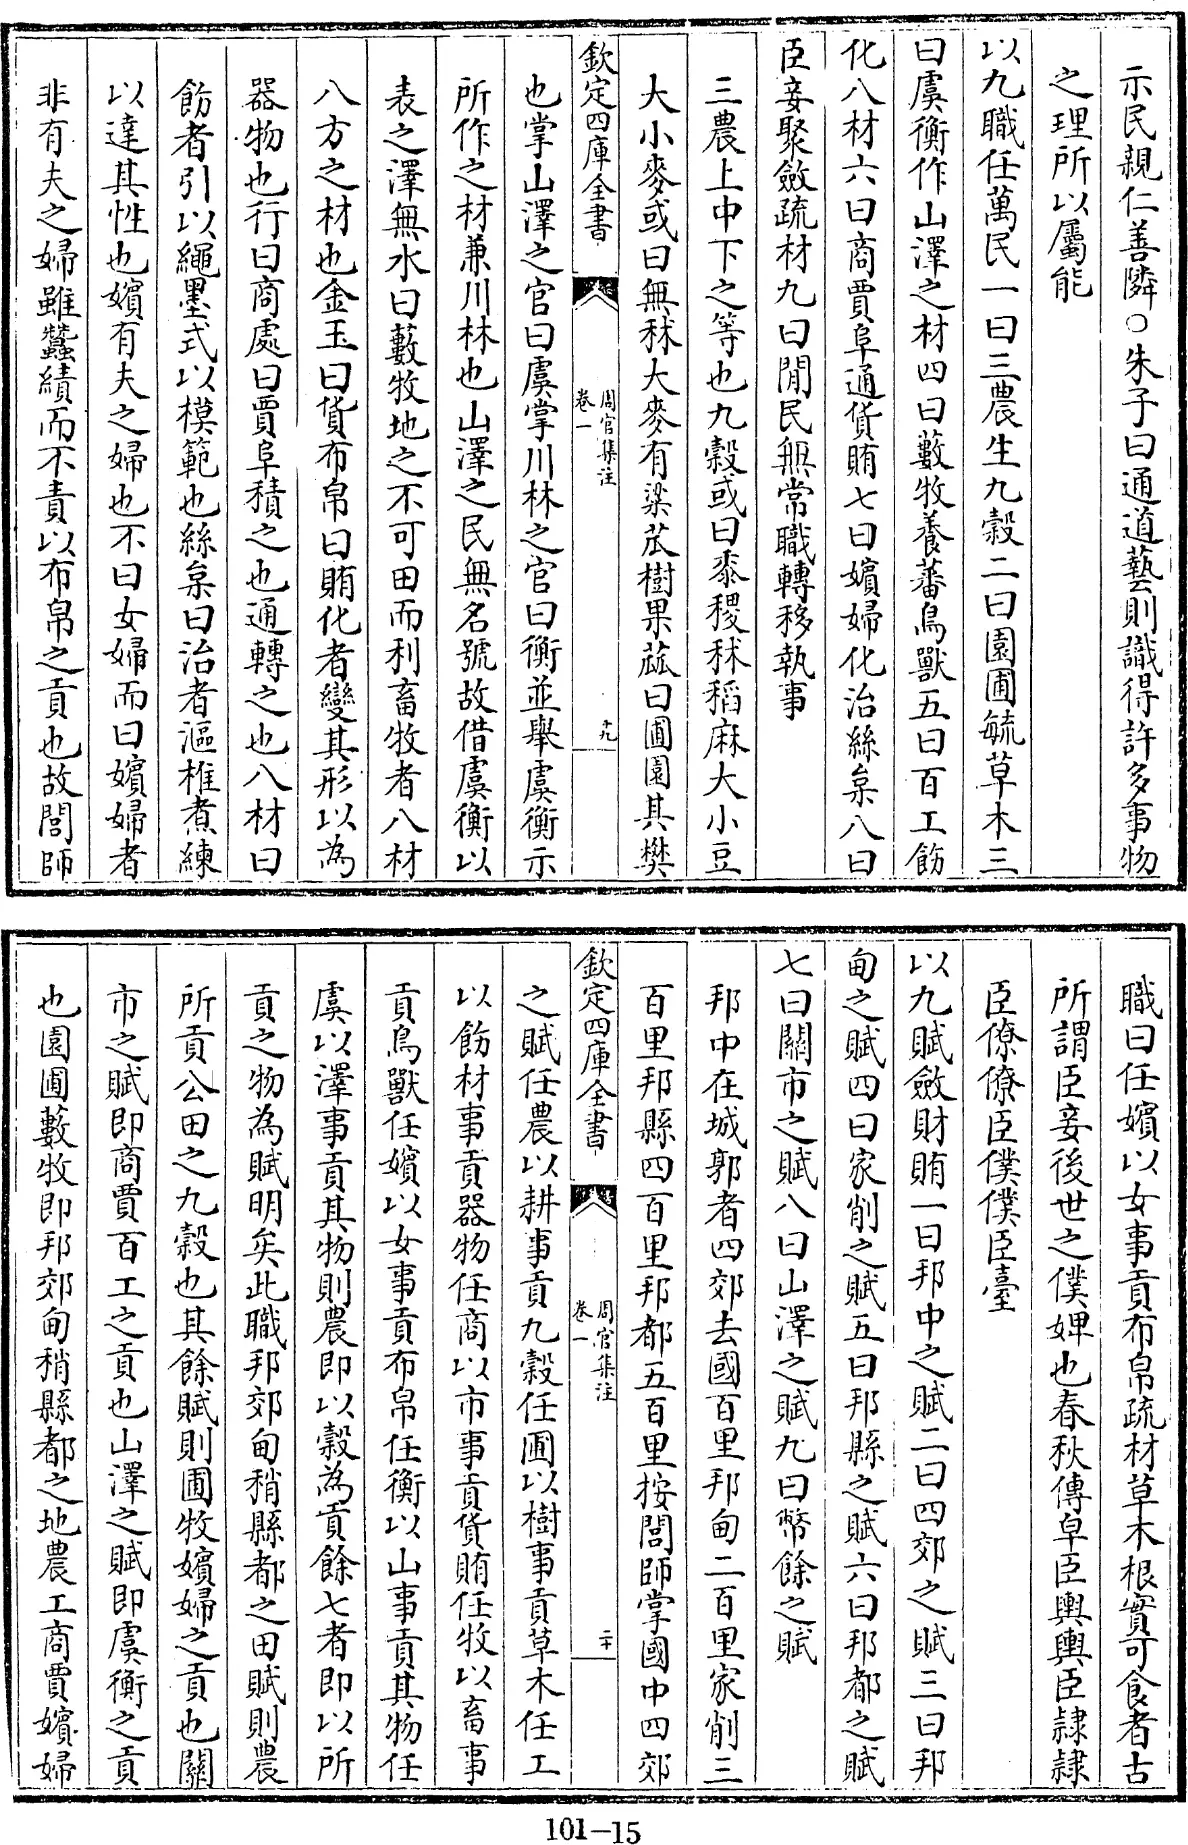 示民親仁善隣○朱子曰通道藝則識得許多事物
之理所以屬能
以九職任萬民一曰三農生九穀二曰園圃毓草木三
曰虞衡作山澤之材四曰藪牧養蕃鳥獸五曰百工飭
化八材六曰商賈阜通貨賄七曰嬪婦化治絲枲八曰
臣妾聚斂疏材九曰閒民無常職轉移執事
三農上中下之等也九穀或曰黍稷秫稻麻大小豆
大小麥或曰無秫大麥有粱苽樹果蓏曰圃園其樊
欽定四庫全書
周官集注
卷一
十九
也掌山澤之官曰虞掌川林之官曰衡並舉虞衡示
所作之材兼川林也山澤之民無名號故借虞衡以
表之澤無水曰藪牧地之不可田而利畜牧者八材
八方之材也金玉曰貨布帛曰賄化者變其形以為
器物也行曰商處曰賈阜積之也通轉之也八材曰
飭者引以繩墨式以模範也絲枲曰治者漚椎煮練
以達其性也嬪有夫之婦也不曰女婦而曰嬪婦者
非有夫之婦雖蠶績而不責以布帛之貢也故閭師
職曰任嬪以女事貢布帛疏材草木根實可食者古
所謂臣妾後世之僕婢也春秋傳皁臣輿輿臣隷隷
臣僚僚臣僕僕臣臺
以九賦斂財賄一曰邦中之賦二曰四郊之賦三曰邦
甸之賦四曰家削之賦五曰邦縣之賦六曰邦都之賦
七曰關市之賦八曰山澤之賦九曰幣餘之賦
邦中在城郭者四郊去國百里邦甸二百里家削三
百里邦縣四百里邦都五百里按閭師掌國中四郊
欽定四庫全書
周官集注
卷一
二十
之賦任農以耕事貢九穀任圃以樹事貢草木任工
以飭材事貢器物任商以市事貢貨賄任牧以畜事
貢鳥獸任嬪以女事貢布帛任衡以山事貢其物任
虞以澤事貢其物則農即以穀為貢餘七者即以所
貢之物為賦明矣此職邦郊甸稍縣都之田賦則農
所貢公田之九穀也其餘賦則圃牧嬪婦之貢也關
市之賦即商賈百工之貢也山澤之賦即虞衡之貢
也園圃藪牧即邦郊甸稍縣都之地農工商賈嬪婦
101-15